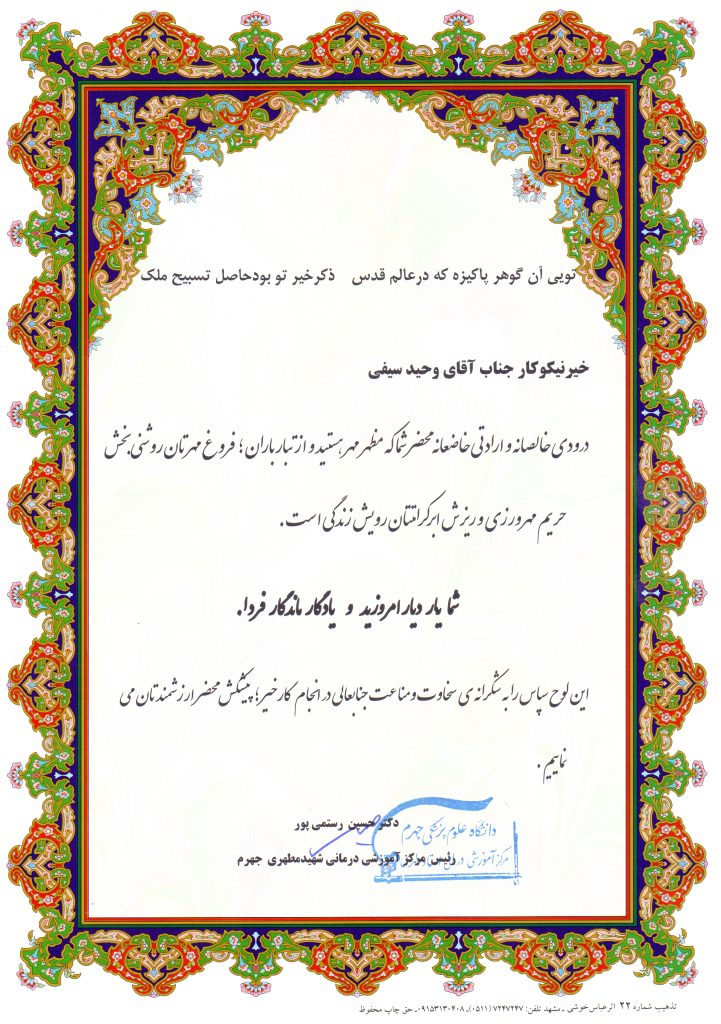 تویی آن گوهر پاکیزه که درعالم قدس ذکرخیر تو بودحاصل تسبیح ملک
خیرنیکوکار جناب آقای وحید سیفی
درودی خالصانه و ارادتی خاضعانه محضر شما که مظهر مهر هستید و از تبار باران؛ فروغ مهرتان روشنی بخش
حریم مهرورزی و ریزش ابر کرامتتان رویش زندگی است.
شما یار دیار امروزید و یادگار ماندگار فردا.
این لوح سپاس را به شکرانه ی سخاوت و مناعت جنابعالی در انجام کار خیر؛ پیشکش محضر ارزشمندتان می
نماییم.
دکتر حسین رستمی پور
رئیس مرکز آموزشی درمانی شهیدمطهری جهرم
دانشگاه علوم پزشکی جهرم
مرکز آموزشی
تذهیب شماره ۲۲ اثرعباس خوشی ـ مشهد تلفن: ۷۲۴۷۲۴۷ (۰۵۱۱)ـ ۰۹۱۵۳۱۳۰۴۰۸ـ حق چاپ محفوظ